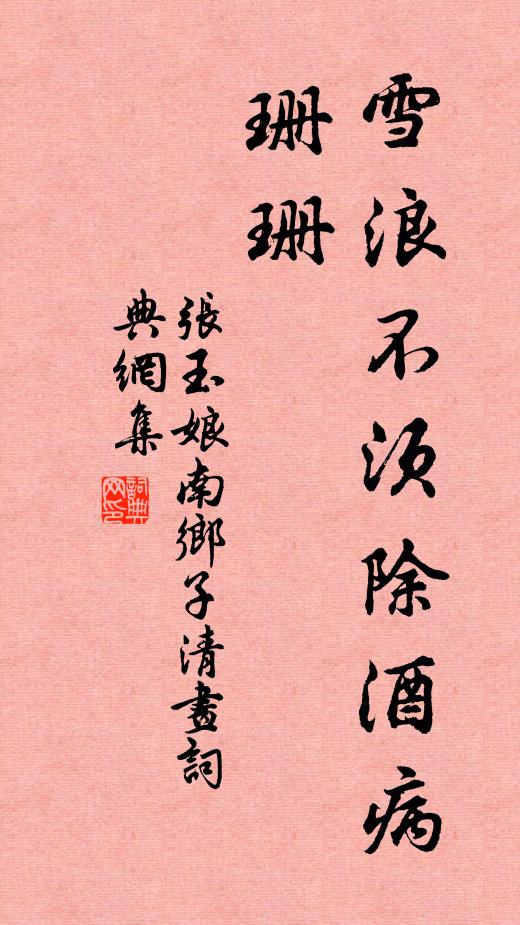 雪浪不須除酒病
珊珊
張玉娘南鄉子清晝詞
典網集
詞典网印